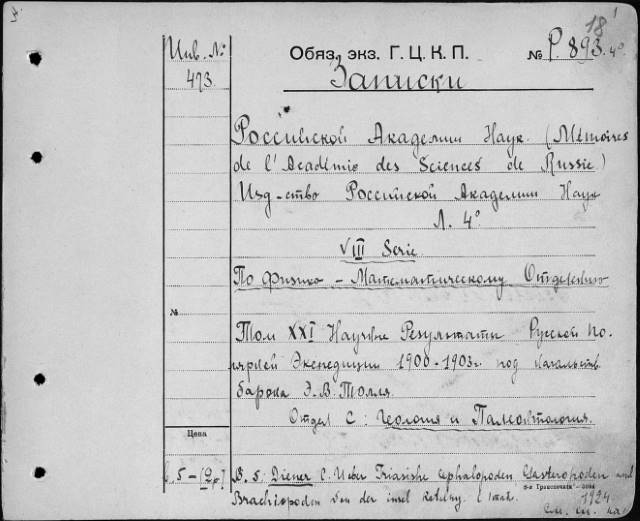 18
Инв. №
473
Обяз. экз. Г. Ц. К. П. № Р. 893. 4°
Записки
Российской Академии Наук. (Mémoires
de l'Académie des Sciences de Russie)
Изд-ство Российской Академии Наук
Л. 4°
VIII Serie
По физико - Математическому Отделению
№
Том XXI Научные Результаты Русской По-
лярной Экспедиции 1900-1903г. под начальств.
барона Э. В. Толля.
Отдел С: Геология и Палеонтология.
Цена
В. 5: Diener C. Ueber Triasishe Cephalopoden Gasteropoden und
Brachiopoden von der insel Kotelny.
1924
См. на